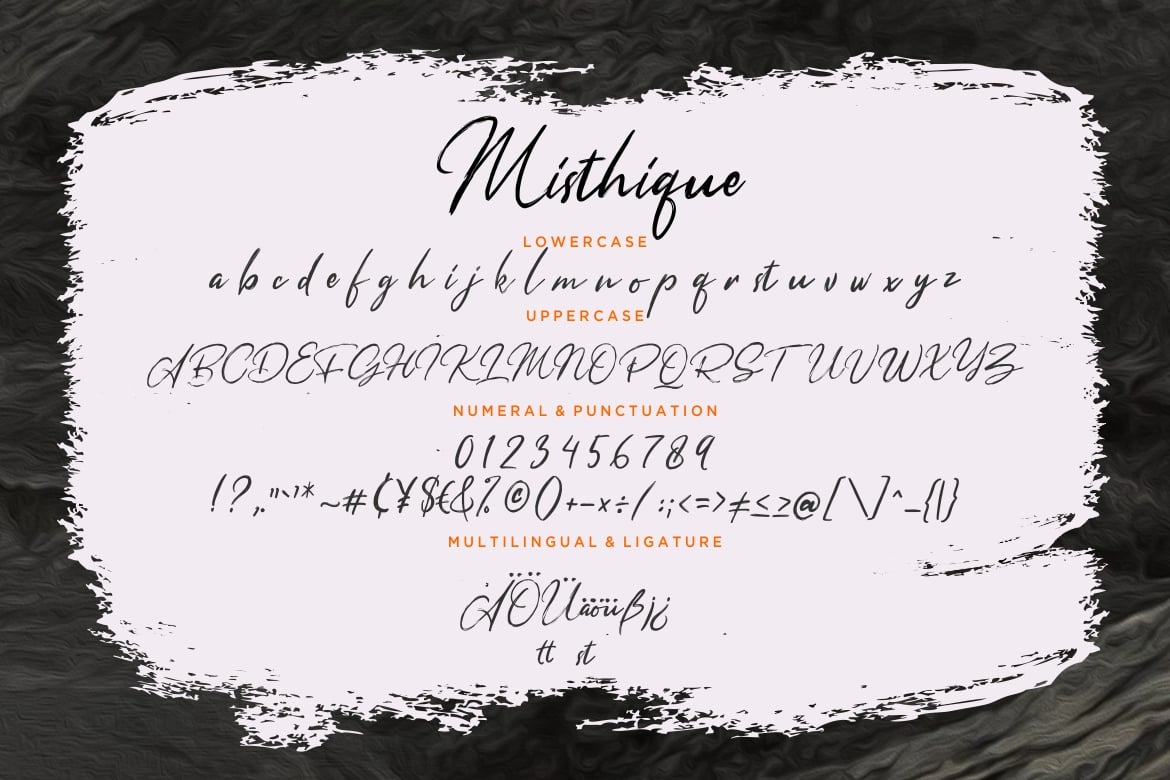 Misthique
LOWERCASE
a b c d e f g h i j k l m n o p q r s t u v w x y z
UPPERCASE
A B C D E F G H I K L M N O P Q R S T U V W X Y Z
NUMERAL & PUNCTUATION
0 1 2 3 4 5 6 7 8 9
! ? , . " " ` ' * ~ # ₵ ¥ $ € & % © ( ) + - × ÷ / : ; < = > ≠ ≤ ≥ @ [ \ ] ^ _ { | }
MULTILINGUAL & LIGATURE
Ä Ö Ü ä ö ü ß ¡ ¿
tt st